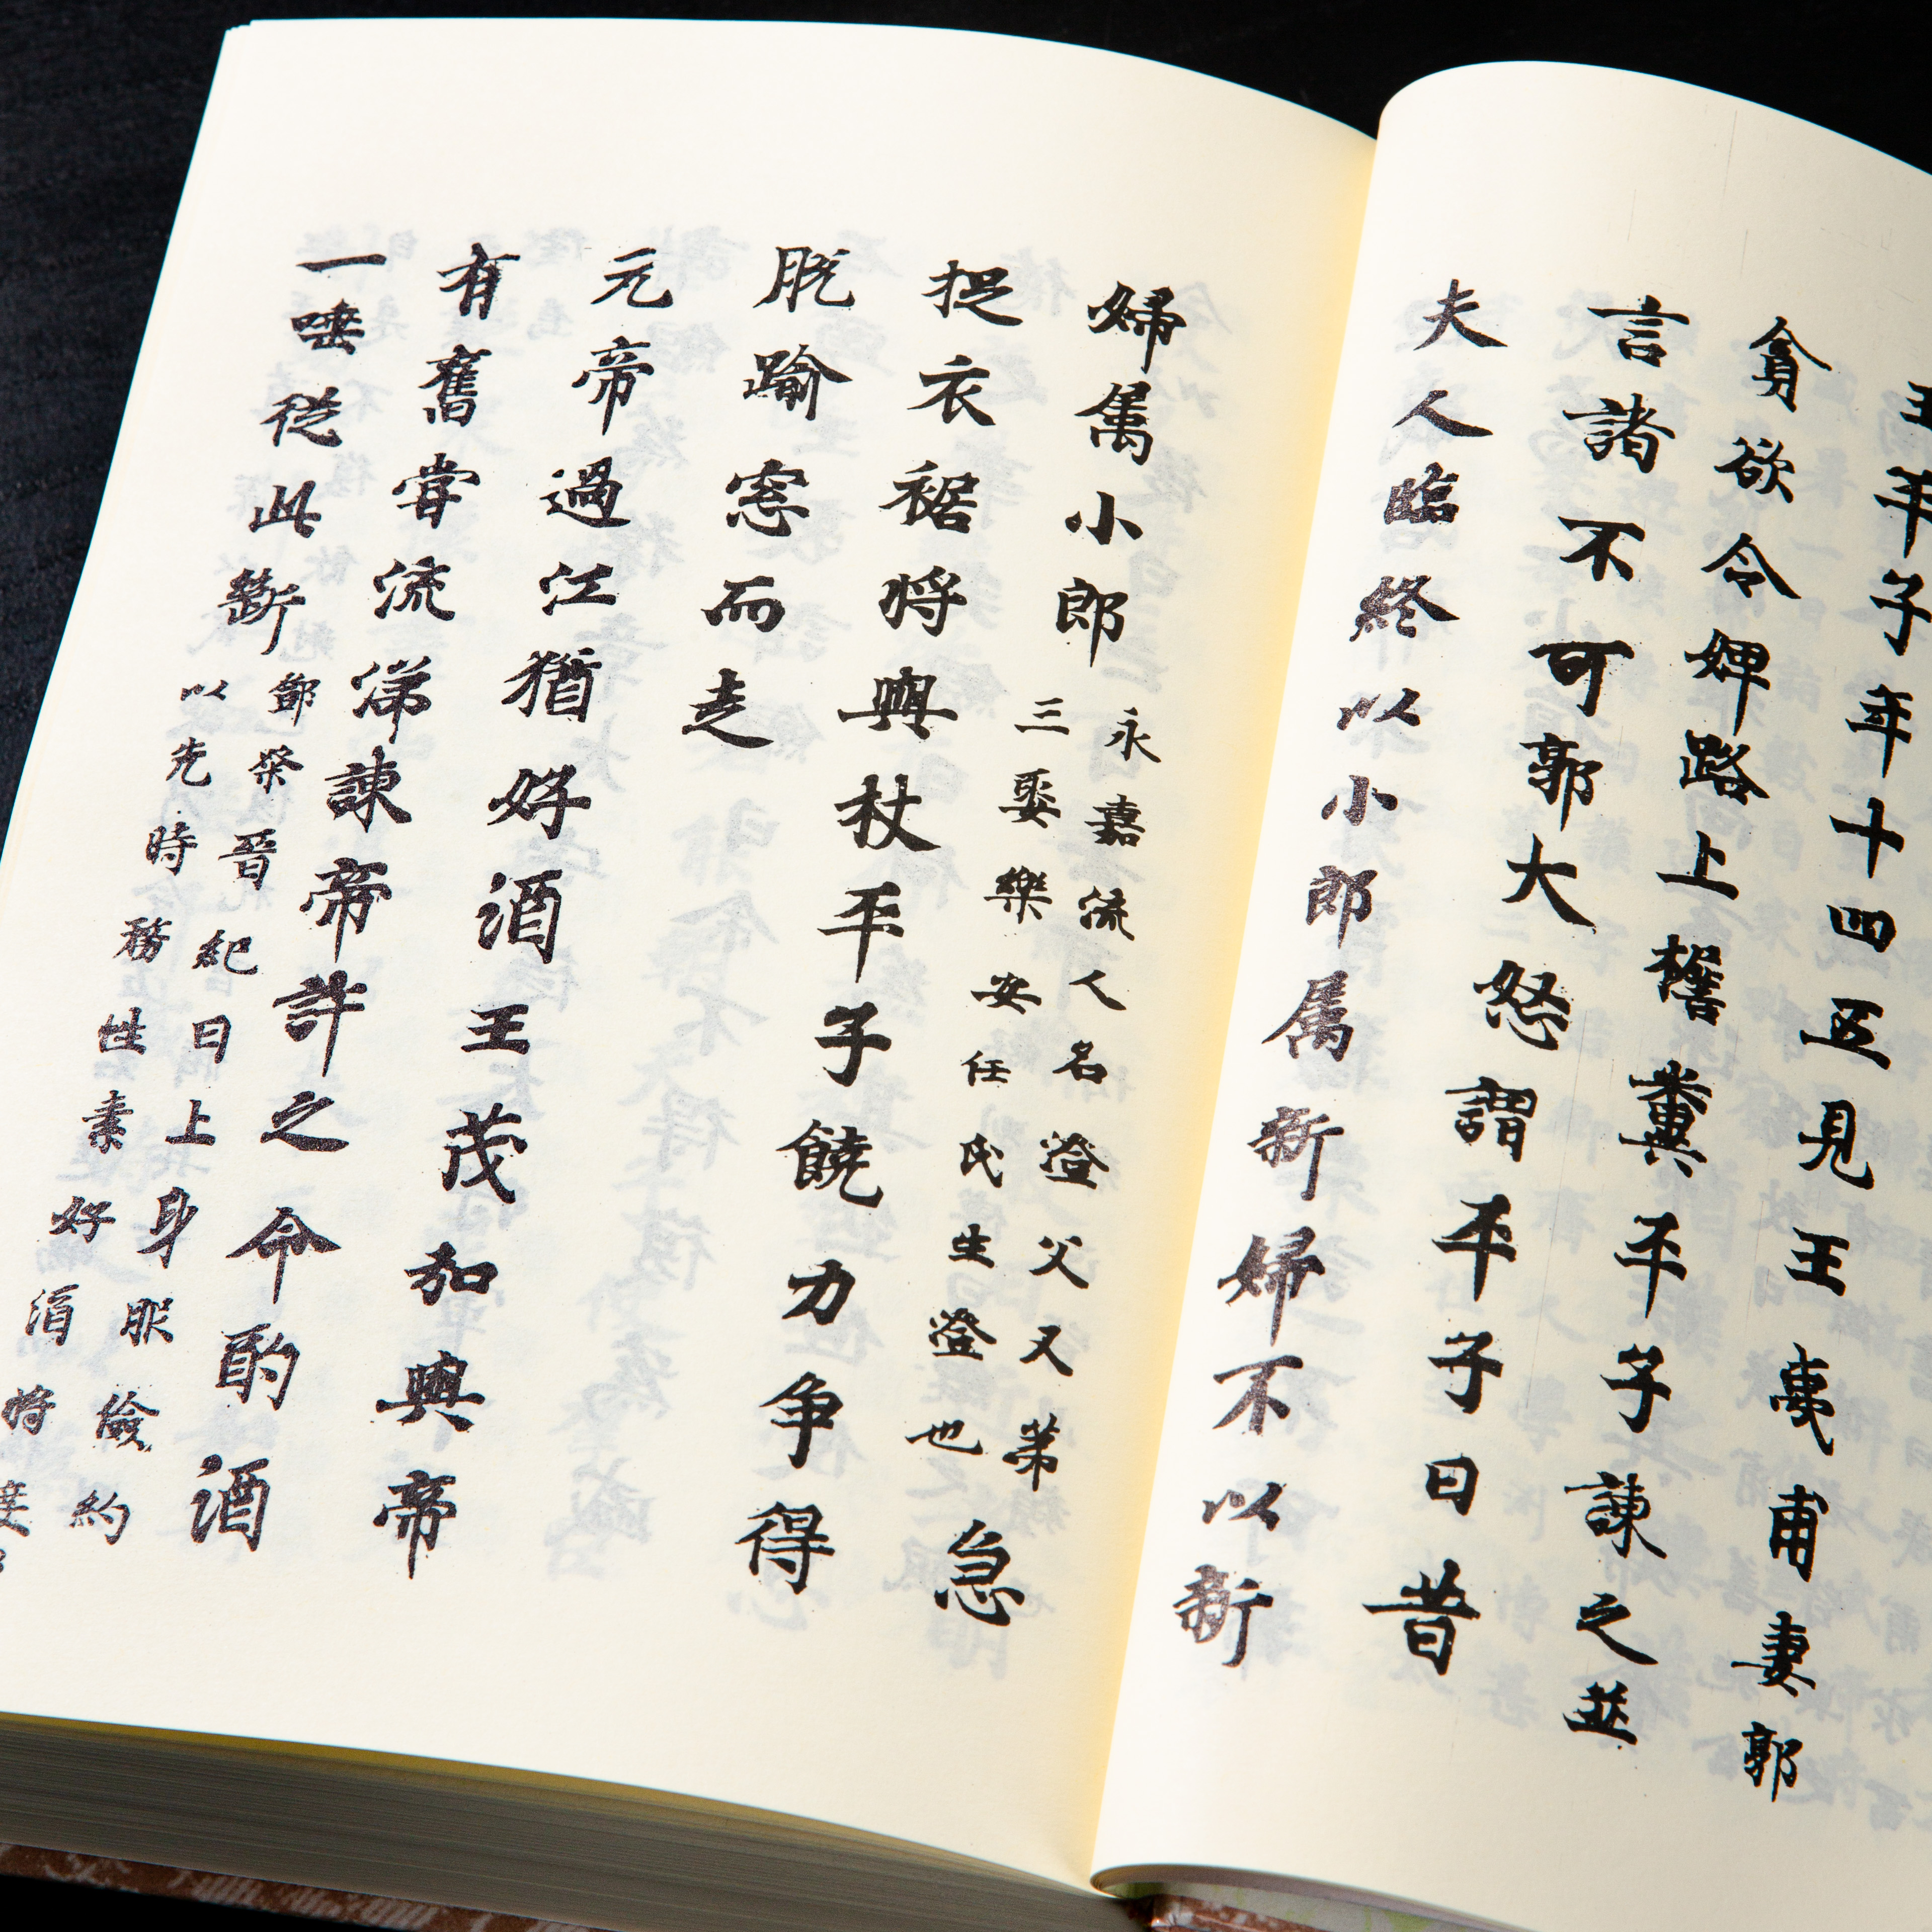 王平子年十四五見王夷甫妻郭
貪欲令婢路上檐糞平子諫之並
言諸不可郭大怒謂平子曰昔
夫人臨終以小郎属新婦不以新
婦属小郎
永嘉流人名澄父又第
三娶樂安任氏生澄也
急
捉衣裾将與杖平子饒力争得
脱踰窓而走
元帝過江猶好酒王茂加與帝
有舊甞流涕諫帝許之命酌酒
一唾從此斷
鄧粲晉紀曰上身服儉約
以先時務性素好酒将